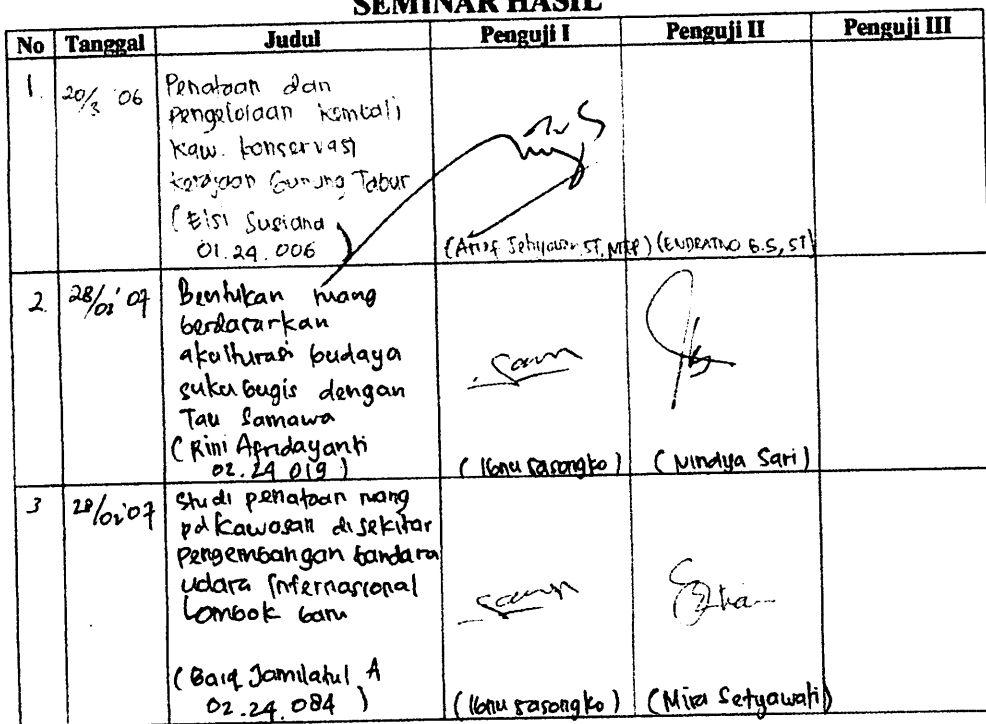 SEMINAR HASIL
No Tanggal Judul Penguji I Penguji II Penguji III
1. 20/3 '06 Penataan dan
pengelolaan kembali
kaw. konservasi
kerajaan Gunung Tabur
(Elsi Susiana
01.24.006 )
(Arief Setiyawan ST, MTP) (ENDRATNO B.S, ST)
2. 28/02' 07 Bentukan ruang
berdasarkan
akulturasi budaya
suku bugis dengan
Tau Samawa
(Rini Afridayanti
02.24 019 )
(Ibnu sasongko) (Nindya Sari)
3 28/02'07 Studi penataan ruang
pd kawasan di sekitar
pengembangan bandara
udara Internasional
Lombok baru
(Baiq Jamilatul A
02.24.084 )
(Ibnu sasongko) (Mira Setyawati)